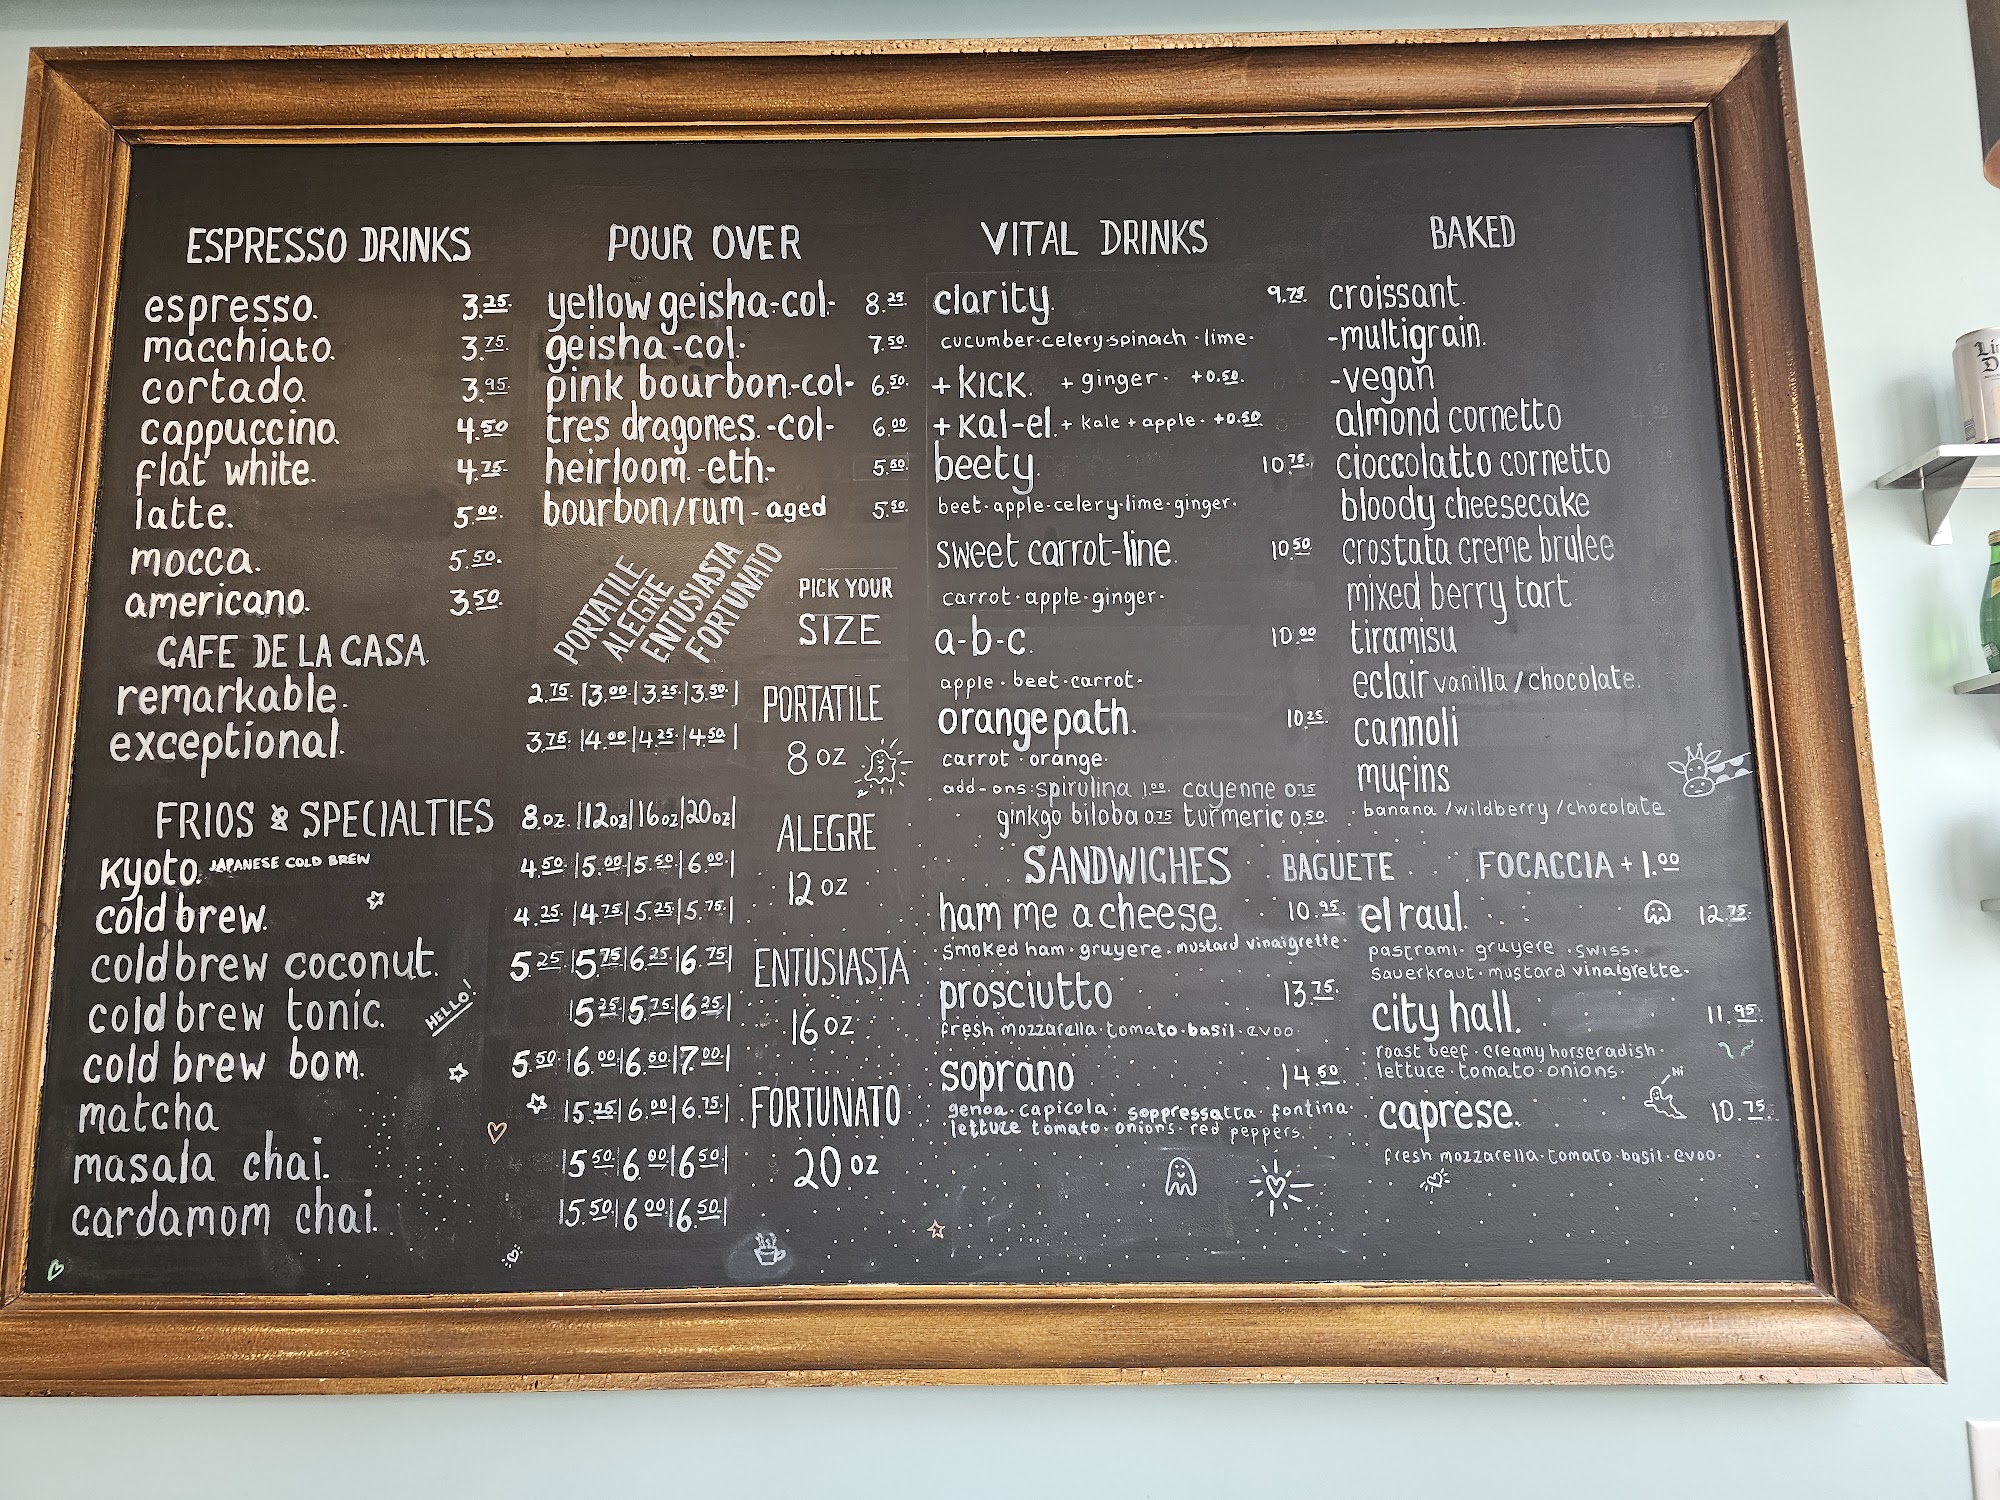 ESPRESSO DRINKS
espresso. 3.25
macchiato. 3.75
cortado. 3.95
cappuccino. 4.50
flat white. 4.75
latte. 5.00
mocca. 5.50
americano. 3.50
CAFE DE LA CASA
PORTATILE
ALEGRE
ENTUSIASTA
FORTUNATO
remarkable. 2.75 | 3.00 | 3.25 | 3.50 |
exceptional. 3.75 | 4.00 | 4.25 | 4.50 |
FRIOS & SPECIALTIES 8oz | 12oz | 16oz | 20oz |
Kyoto. JAPANESE COLD BREW 4.50 | 5.00 | 5.50 | 6.00 |
cold brew. 4.25 | 4.75 | 5.25 | 5.75 |
cold brew coconut. 5.25 | 5.75 | 6.25 | 6.75 |
cold brew tonic. | 5.25 | 5.75 | 6.25 |
HELLO!
cold brew bom. 5.50 | 6.00 | 6.50 | 7.00 |
matcha | 5.25 | 6.00 | 6.75 |
masala chai. | 5.50 | 6.00 | 6.50 |
cardamom chai. | 5.50 | 6.00 | 6.50 |
POUR OVER
yellow geisha-col- 8.25
geisha-col- 7.50
pink bourbon-col- 6.50
tres dragones.-col- 6.00
heirloom.-eth- 5.50
bourbon/rum-aged 5.50
PICK YOUR
SIZE
PORTATILE
8 oz
ALEGRE
12 oz
ENTUSIASTA
16 oz
FORTUNATO
20 oz
VITAL DRINKS
clarity. 9.75
cucumber·celery·spinach·lime·
+ KICK. + ginger· +0.50
+ Kal-el. + kale + apple· +0.50
beety. 10.75
beet·apple·celery·lime·ginger·
sweet carrot-line. 10.50
carrot·apple·ginger·
a-b-c. 10.00
apple·beet·carrot·
orange path. 10.25
carrot·orange·
add-ons: spirulina 1.00 cayenne 0.75
ginkgo biloba 0.75 turmeric 0.50
BAKED
croissant.
-multigrain.
-vegan
almond cornetto
cioccolatto cornetto
bloody cheesecake
crostata creme brulee
mixed berry tart
tiramisu
eclair vanilla/chocolate.
cannoli
mufins
·banana/wildberry/chocolate.
SANDWICHES BAGUETE FOCACCIA + 1.00
ham me a cheese. 10.95
·smoked ham·gruyere·mustard vinaigrette·
prosciutto 13.75
fresh mozzarella·tomato·basil·evoo
soprano 14.50
genoa·capicola·soppressatta·fontina·
lettuce tomato·onions·red peppers.
el raul. 12.75
pastrami·gruyere·swiss·
sauerkraut·mustard vinaigrette·
city hall. 11.95
roast beef·creamy horseradish·
lettuce·tomato·onions·
Hi
caprese. 10.75
fresh mozzarella·tomato·basil·evoo·